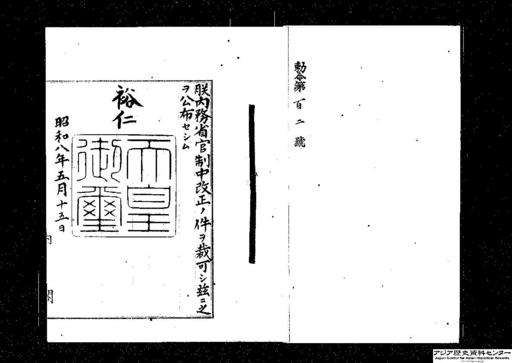 勅令第百二號
朕内務省官制中改正ノ件ヲ裁可シ茲ニ之
ヲ公布セシム
裕仁
天皇
御璽
昭和八年五月十五日
内閣
アジア歴史資料センター
Japan Center for Asian Historical Records